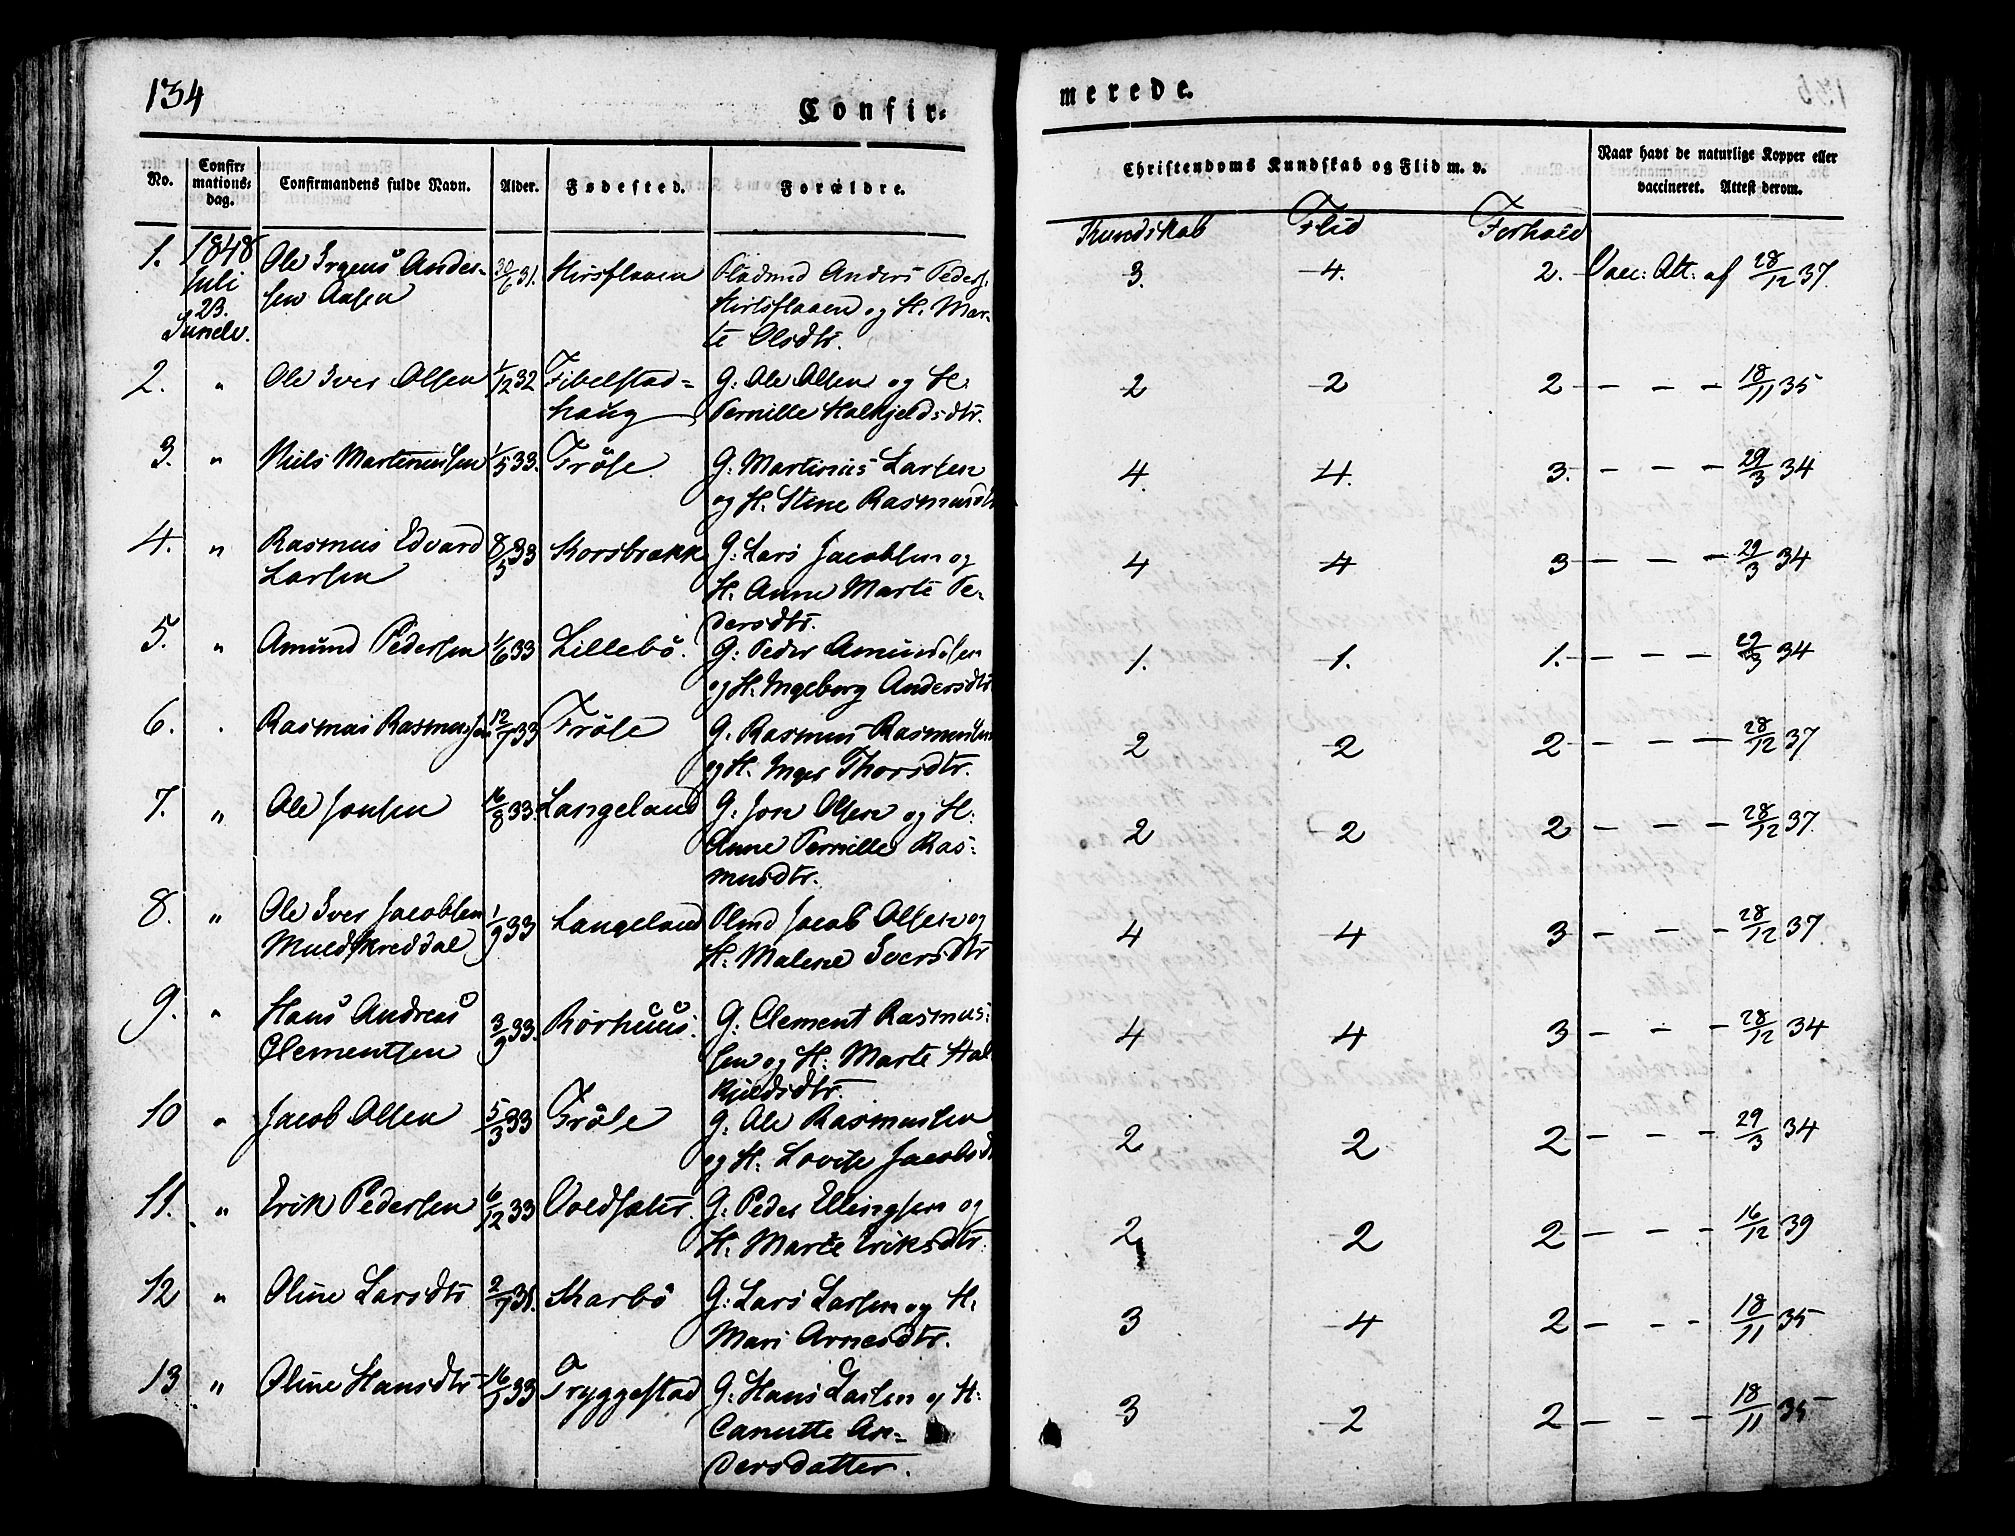 134
Confir=
merede.
No.
Confir=
mations=
dag.
Confirmandens fulde Navn.
Alder.
Fødested.
Forældre.
Christendoms Kundskab og Flid m. v.
Naar havt de naturlige Kopper eller
vaccineret. Attest derom.
Kundskab Flid Forhold
1. 1848 Juli 23. Sunelv.
Ole Irgens Ander=
sen Aasen
30/6 31. Hirsflaaen
Pladsmd Anders Peders.
Hirlsflaaen og H. Mar=
te Olsdtr.
3. 4. 2. Vacc: Att. af 28/12 37.
2. " Ole Iver Olsen 1/12 32 Fibelstad=
haug
G: Ole Olsen og H.
Pernille Halkjeldsdtr.
2 2 2 — — — 18/11 35
3. " Niels Martinussen 1/5 33. Frøse
G: Martinus Larsen
og H. Stine Rasmusdtr
4. 4. 3. — — — 29/3 34
4. " Rasmus Edvard
Larsen
8/5 33 Korsbrække
G: Lars Jacobsen og
H. Anne Marte Pe=
dersdtr.
4 4 3 — — — 29/3 34
5. " Amund Pedersen 1/6 33 Lillebø.
G: Peder Amundsen
og H. Ingeborg Andersdtr
1. 1. 1. — — — 29/3 34
6. " Rasmus Rasmussen 12/7 33 Frøse
G. Rasmus Rasmussen
og H. Inger Thorsdtr.
2 2 2 — — — 28/12 37
7. " Ole Jonsen 16/8 33. Langeland
G: Jon Olsen og H:
Anne Pernille Ras=
musdtr.
2 2 2 — — — 28/12 37.
8. " Ole Iver Jacobsen
Muldskreddal
1/9 33 Langeland
Plmd Jacob Olsen og
H. Malene Iversdtr
4 4 3 — — — 28/12 37.
9. " Hans Andreas
Clementsen
3/9 33. Rørhuus.
G: Clement Rasmus=
sen og H: Marte Hal
kjeldsdtr.
4 4 3 — — — 28/12 34
10 " Jacob Olsen 5/3 33 Frøse
G: Ole Rasmussen
og H. Lovise Jacobsd
2 2 2 — — — 29/3 34
11. " Erik Pedersen 6/12 33 Voldsæter.
G: Peder Ellingsen og
H. Marte Eriksdtr.
2 2 2 — — — 16/12 39
12 " Oline Larsdtr 2/7 31. Skarbø
G: Lars Larsen og H.
Mari Arnesdtr.
3 4 2 — — — 18/11 35
13 " Oline Hansdtr 16/1 33 Tryggestad
G: Hans Larsen og H:
Canutte An=
dersdatter.
3 2 2 — — — 18/11 35